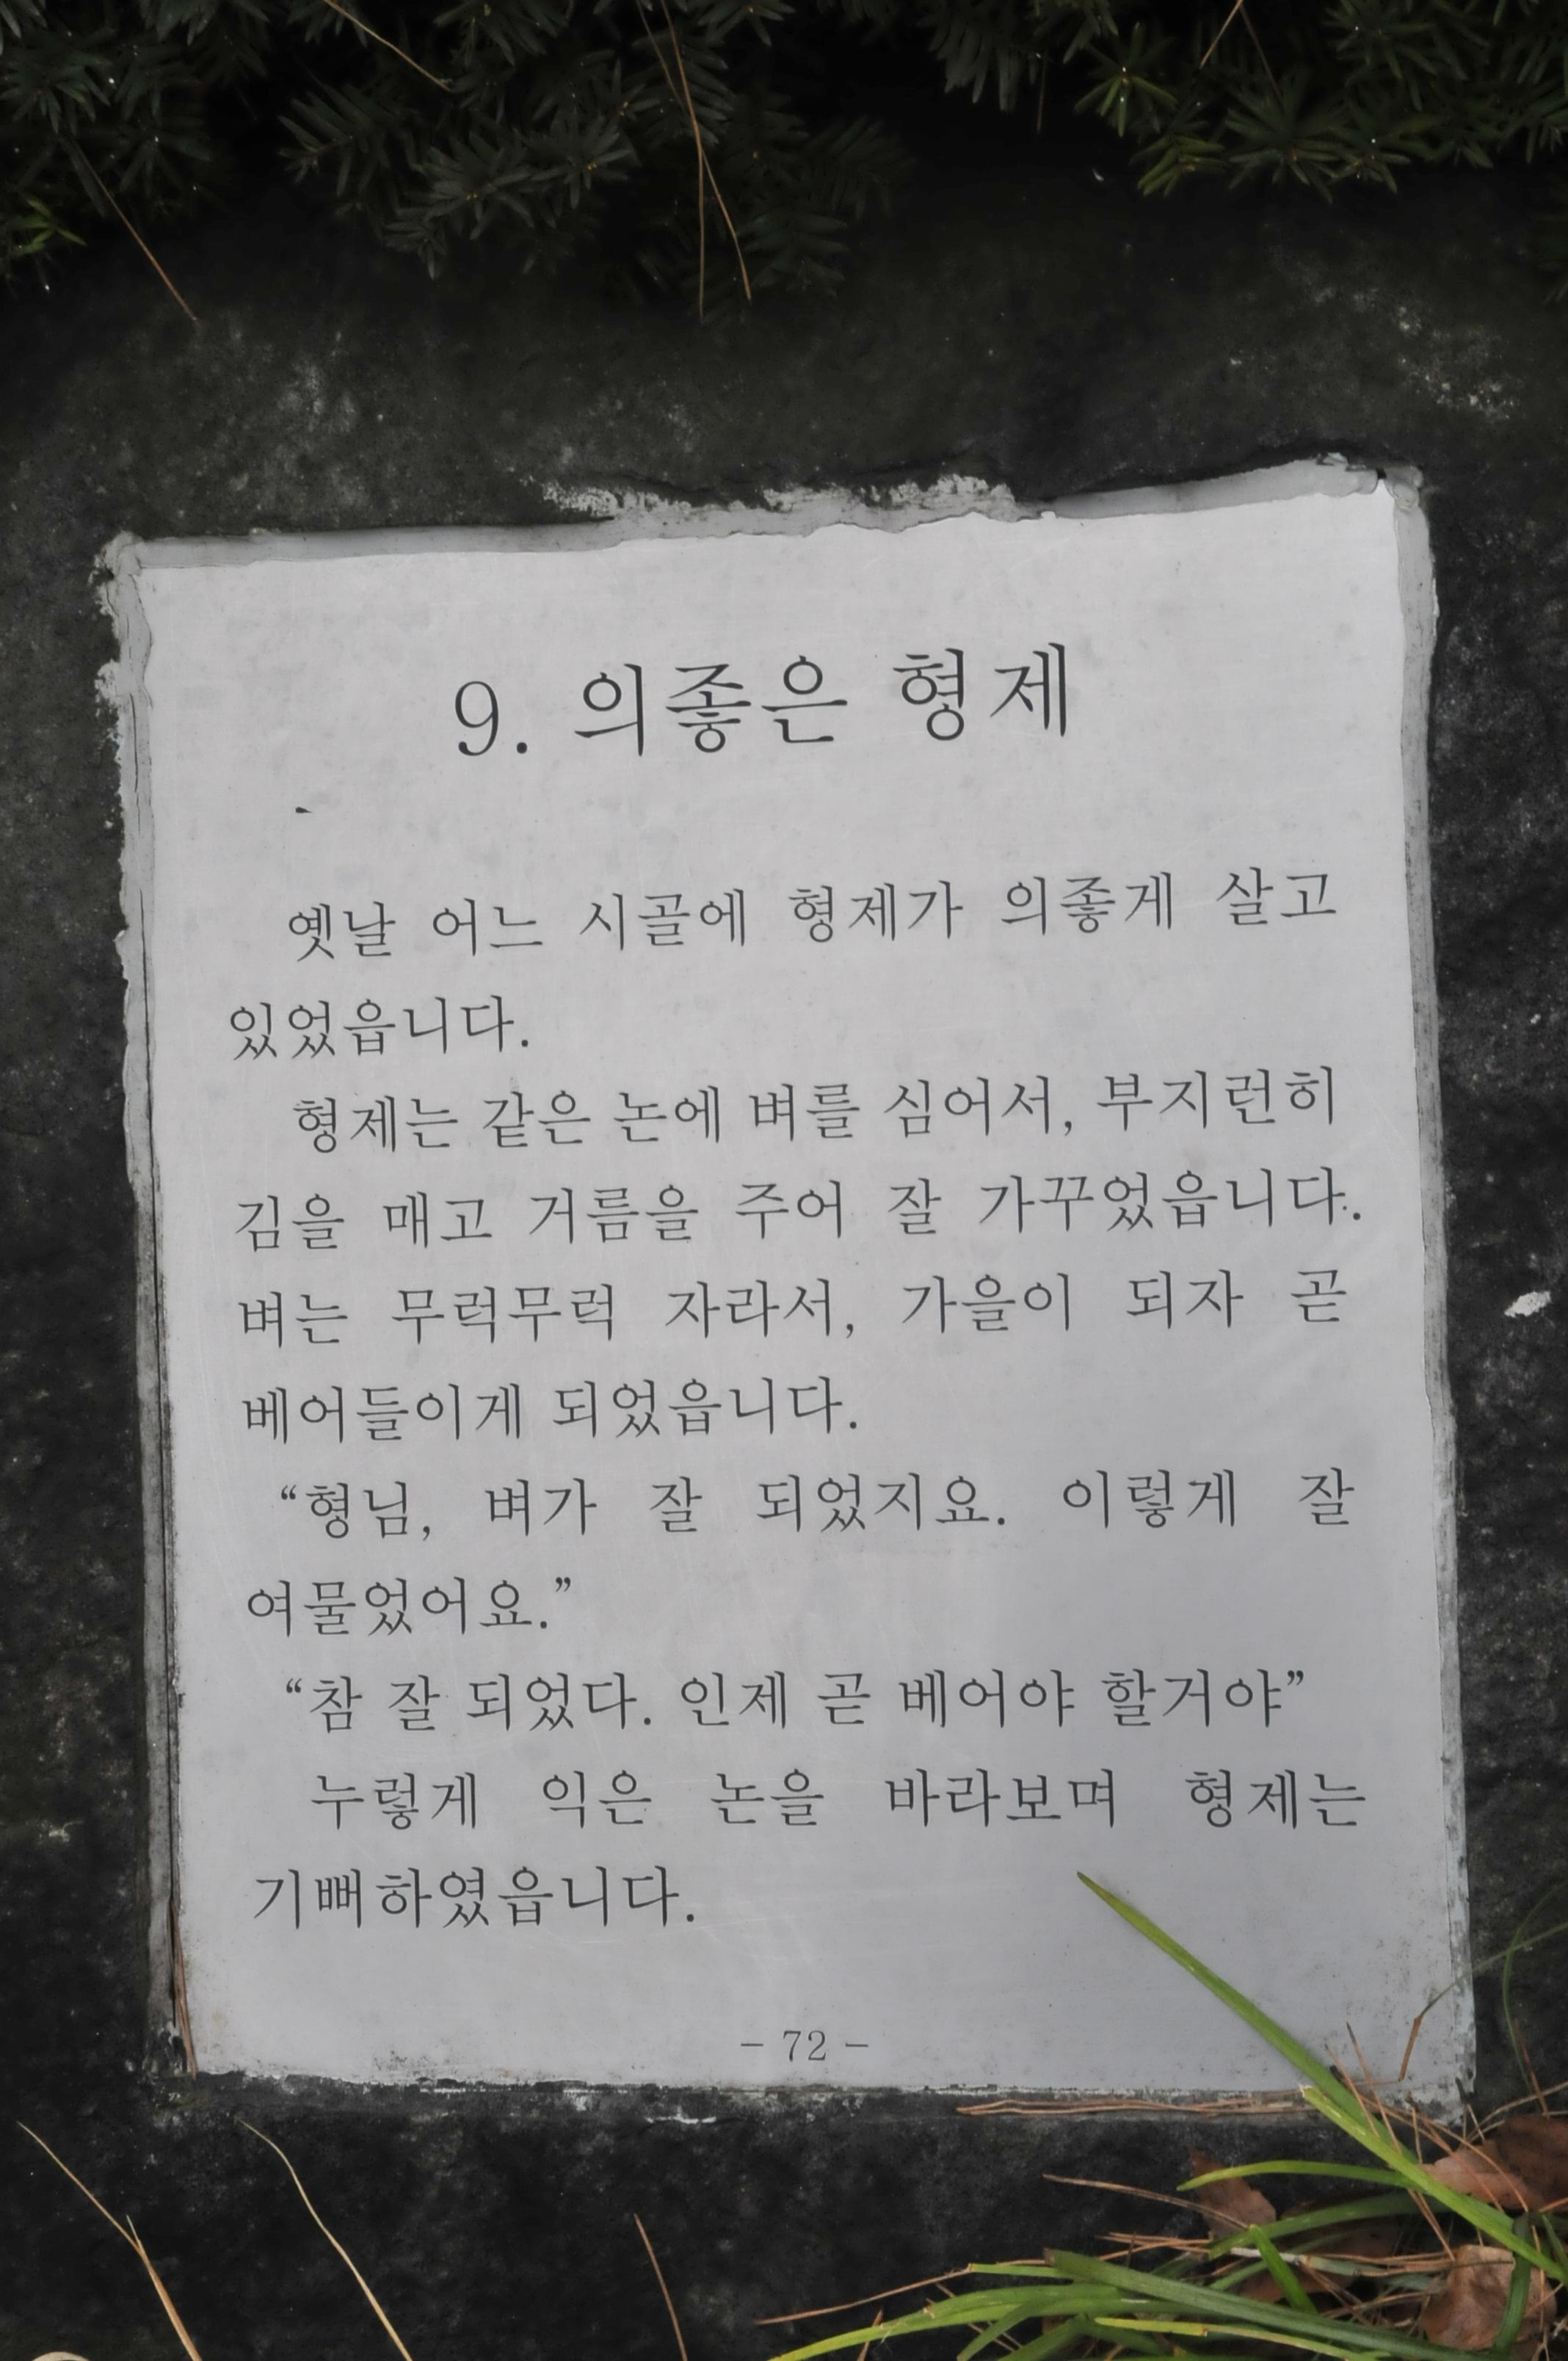 9. 의좋은 형제
옛날 어느 시골에 형제가 의좋게 살고
있었읍니다.
형제는 같은 논에 벼를 심어서, 부지런히
김을 매고 거름을 주어 잘 가꾸었읍니다.
벼는 무럭무럭 자라서, 가을이 되자 곧
베어들이게 되었읍니다.
“형님, 벼가 잘 되었지요. 이렇게 잘
여물었어요.”
“참 잘 되었다. 인제 곧 베어야 할거야”
누렇게 익은 논을 바라보며 형제는
기뻐하였읍니다.
– 72 –